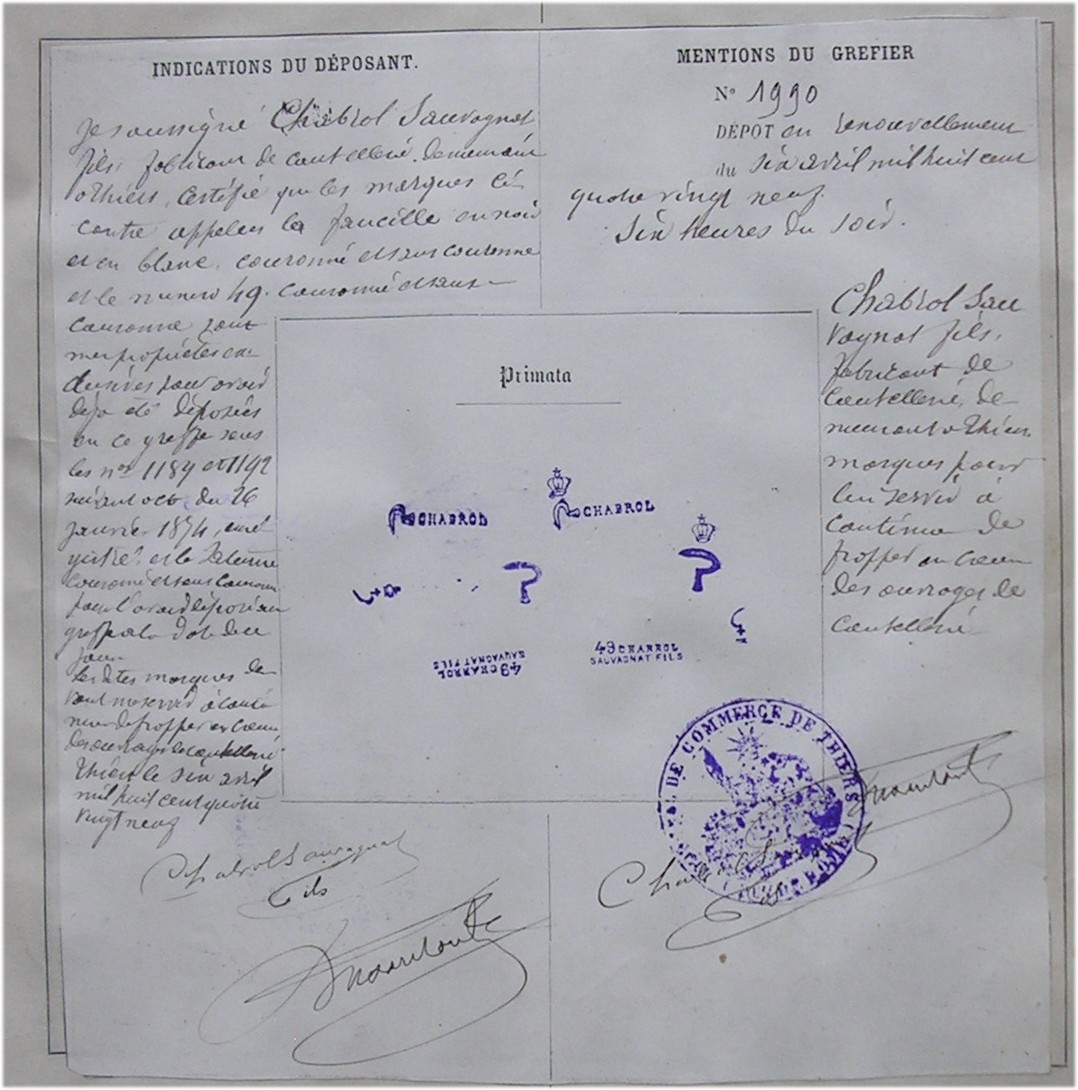 INDICATIONS DU DÉPOSANT.
Je soussigné Chabrol Sauvagnat
fils, fabricant de coutellerie, demeurant
à Thiers, certifie que les marques ci
contre appelées la faucille en noir
et en blanc, couronné et sans couronne
et le numero 49. couronné et sans
couronne sont
mes propriétés
pour avoir
déjà été déposées
en ce greffe sous
les nos 1189 et 1192
suivant acte du 26
Janvier 1874,
et le
couronné et sans couronne
pour l'avoir déposé au
greffe à la date de ce
jour
les dites marques de
vant me servir à conti
nuer de frapper au cœur
des ouvrages de coutellerie
Thiers le six avril
mil huit cent quatre
vingt neuf
Chabrol Sauvagnat
fils
MENTIONS DU GREFIER
No 1990
DÉPOT en renouvellement
du six avril mil huit cent
quatre vingt neuf
six heures du soir.
Chabrol Sau
vagnat fils,
fabricant de
coutellerie, de
meurant à Thiers,
marques pour
lui servir à
continuer de
frapper au cœur
des ouvrages de
coutellerie
Primata
CHABROL
CHABROL
49 CHABROL
SAUVAGNAT FILS
49 CHABROL
SAUVAGNAT FILS
DE COMMERCE DE THIERS
Chabrol
fils